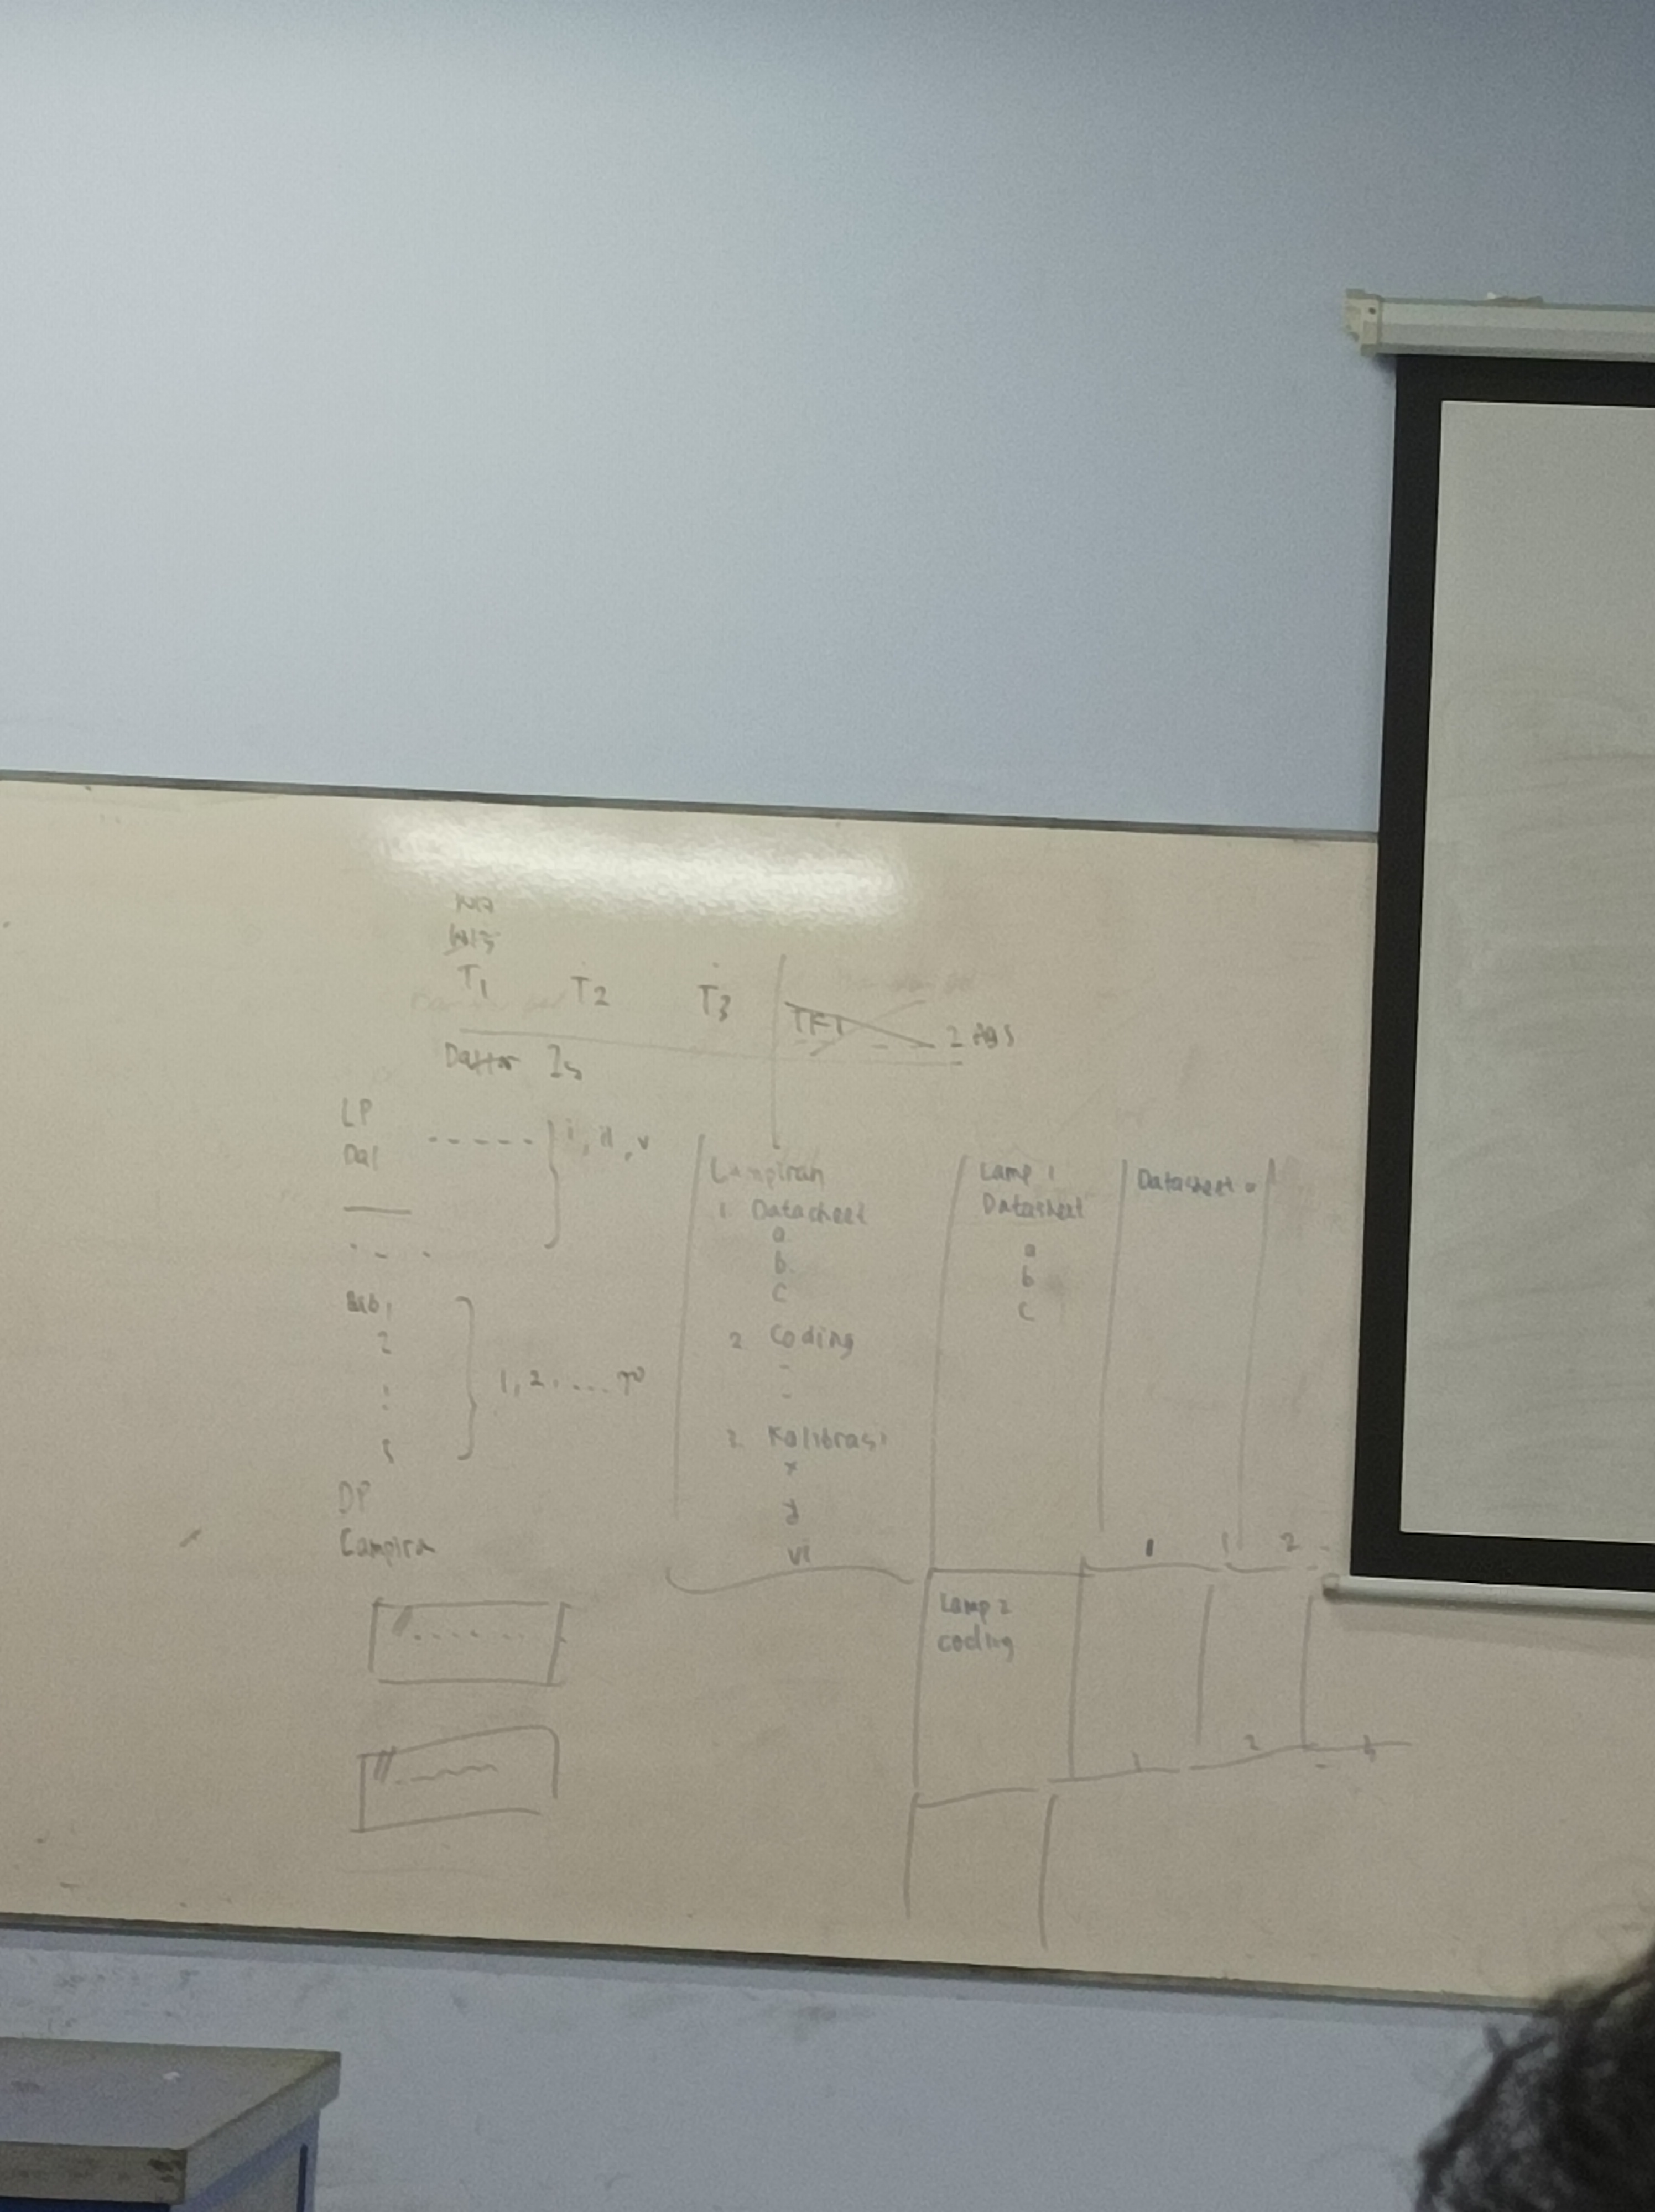 T1 T2 T3 TFT 2 Ags
Daftar Is
LP
Daf
i, ii, v
Bab 1
2
:
5
1, 2, ....
DP
Lampira
Lampiran
1 Datasheet
a
b
c
2 Coding
-
-
3. Kalibrasi
x
y
vi
Lamp 1
Datasheet
a
b
c
Datasheet a
1 1 2
Lamp 2
coding
1 2 3